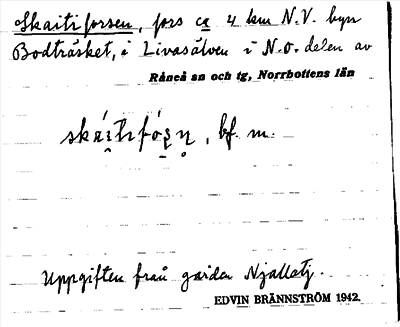 Skaitiforsen, fors ca 4 km N.V. byn
Bodträsket, i Livasälven i N.O. delen av
Råneå sn och tg, Norrbottens län
bf. m.
Uppgiften från gården Njallatj.
EDVIN BRÄNNSTRÖM 1942.